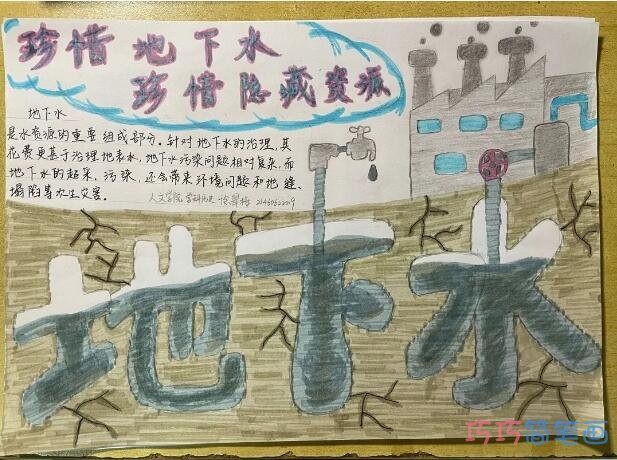 珍惜地下水
珍惜隐藏资源
地下水
是水资源的重要组成部分。针对地下水的治理，其
花费更甚于治理地表水，地下水污染问题相对复杂，而
地下水的超采，污染，还会带来环境问题和地缝、
塌陷等次生灾害。
人文学院
地下水
巧巧简笔画